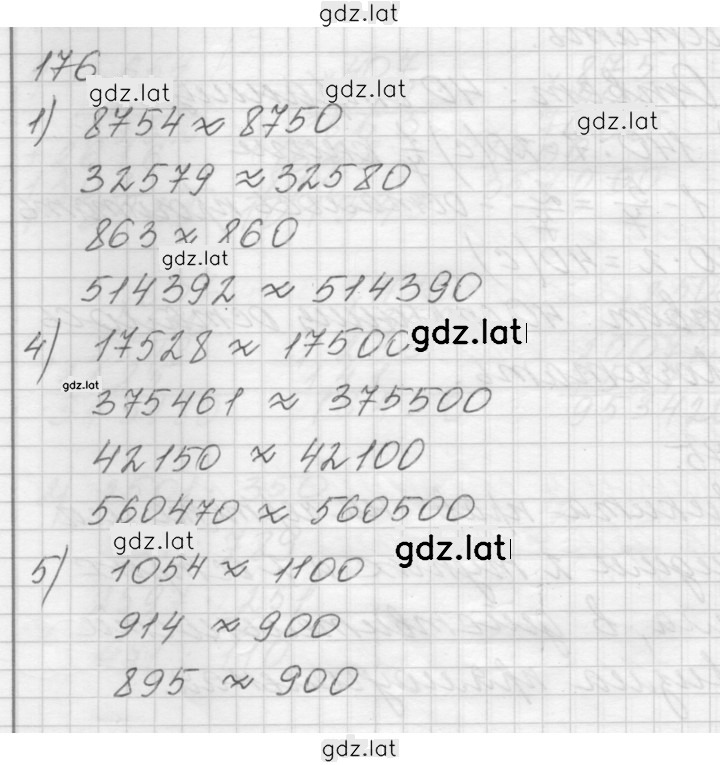 gdz.lat
176
gdz.lat gdz.lat
1) 8754 ≈ 8750 gdz.lat
32579 ≈ 32580
863 ≈ 860
gdz.lat
514392 ≈ 514390
4) 17528 ≈ 17500 gdz.lat
gdz.lat
375461 ≈ 375500
42150 ≈ 42100
560470 ≈ 560500
gdz.lat gdz.lat
5) 1054 ≈ 1100
914 ≈ 900
895 ≈ 900
gdz.lat